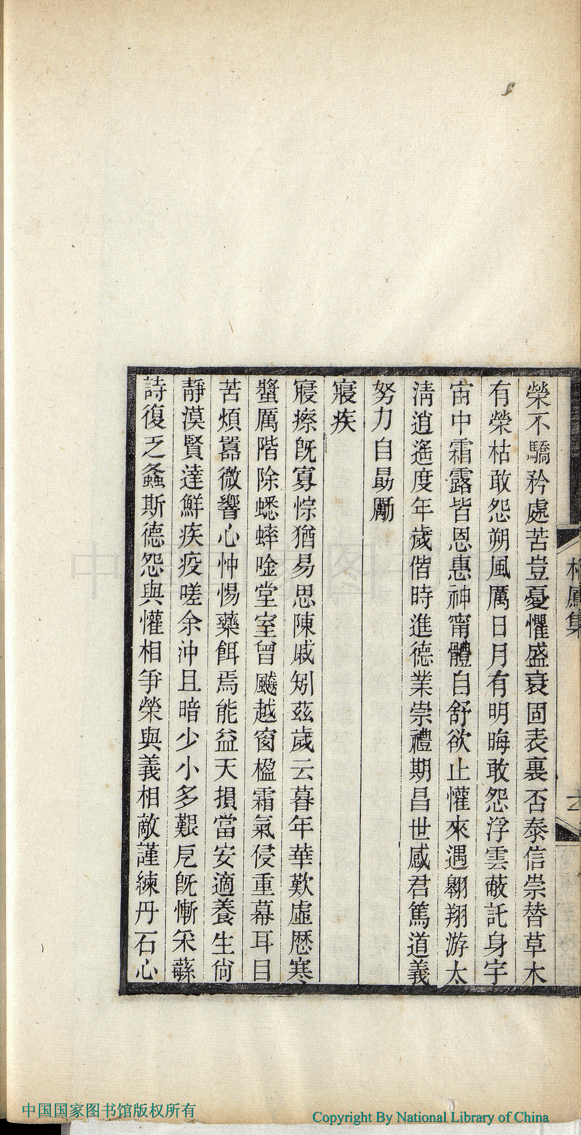 榮不驕矜處苦豈憂懼盛衰固表裏否泰信崇替草木
有榮枯敢怨朔風厲日月有明晦敢怨浮雲蔽託身宇
宙中霜露皆恩惠神甯體自舒欲止懽來遇翱翔游太
淸逍遙度年歲偕時進德業崇禮期昌世感君篤道義
努力自勗勵
寢疾
寢瘵旣寡悰猶易思陳戚矧茲歲云暮年華歎虛歷寒
螿厲階除蟋蟀唫堂室曾飈越窗楹霜氣侵重幕耳目
苦煩囂微響心忡惕藥餌焉能益天損當安適養生尙
靜漠賢達鮮疾疫嗟余沖且暗少小多艱戹旣慚采蘇
詩復乏螽斯德怨與懽相爭榮與義相敵謹練丹石心
中国国家图书馆版权所有
Copyright By National Library of China